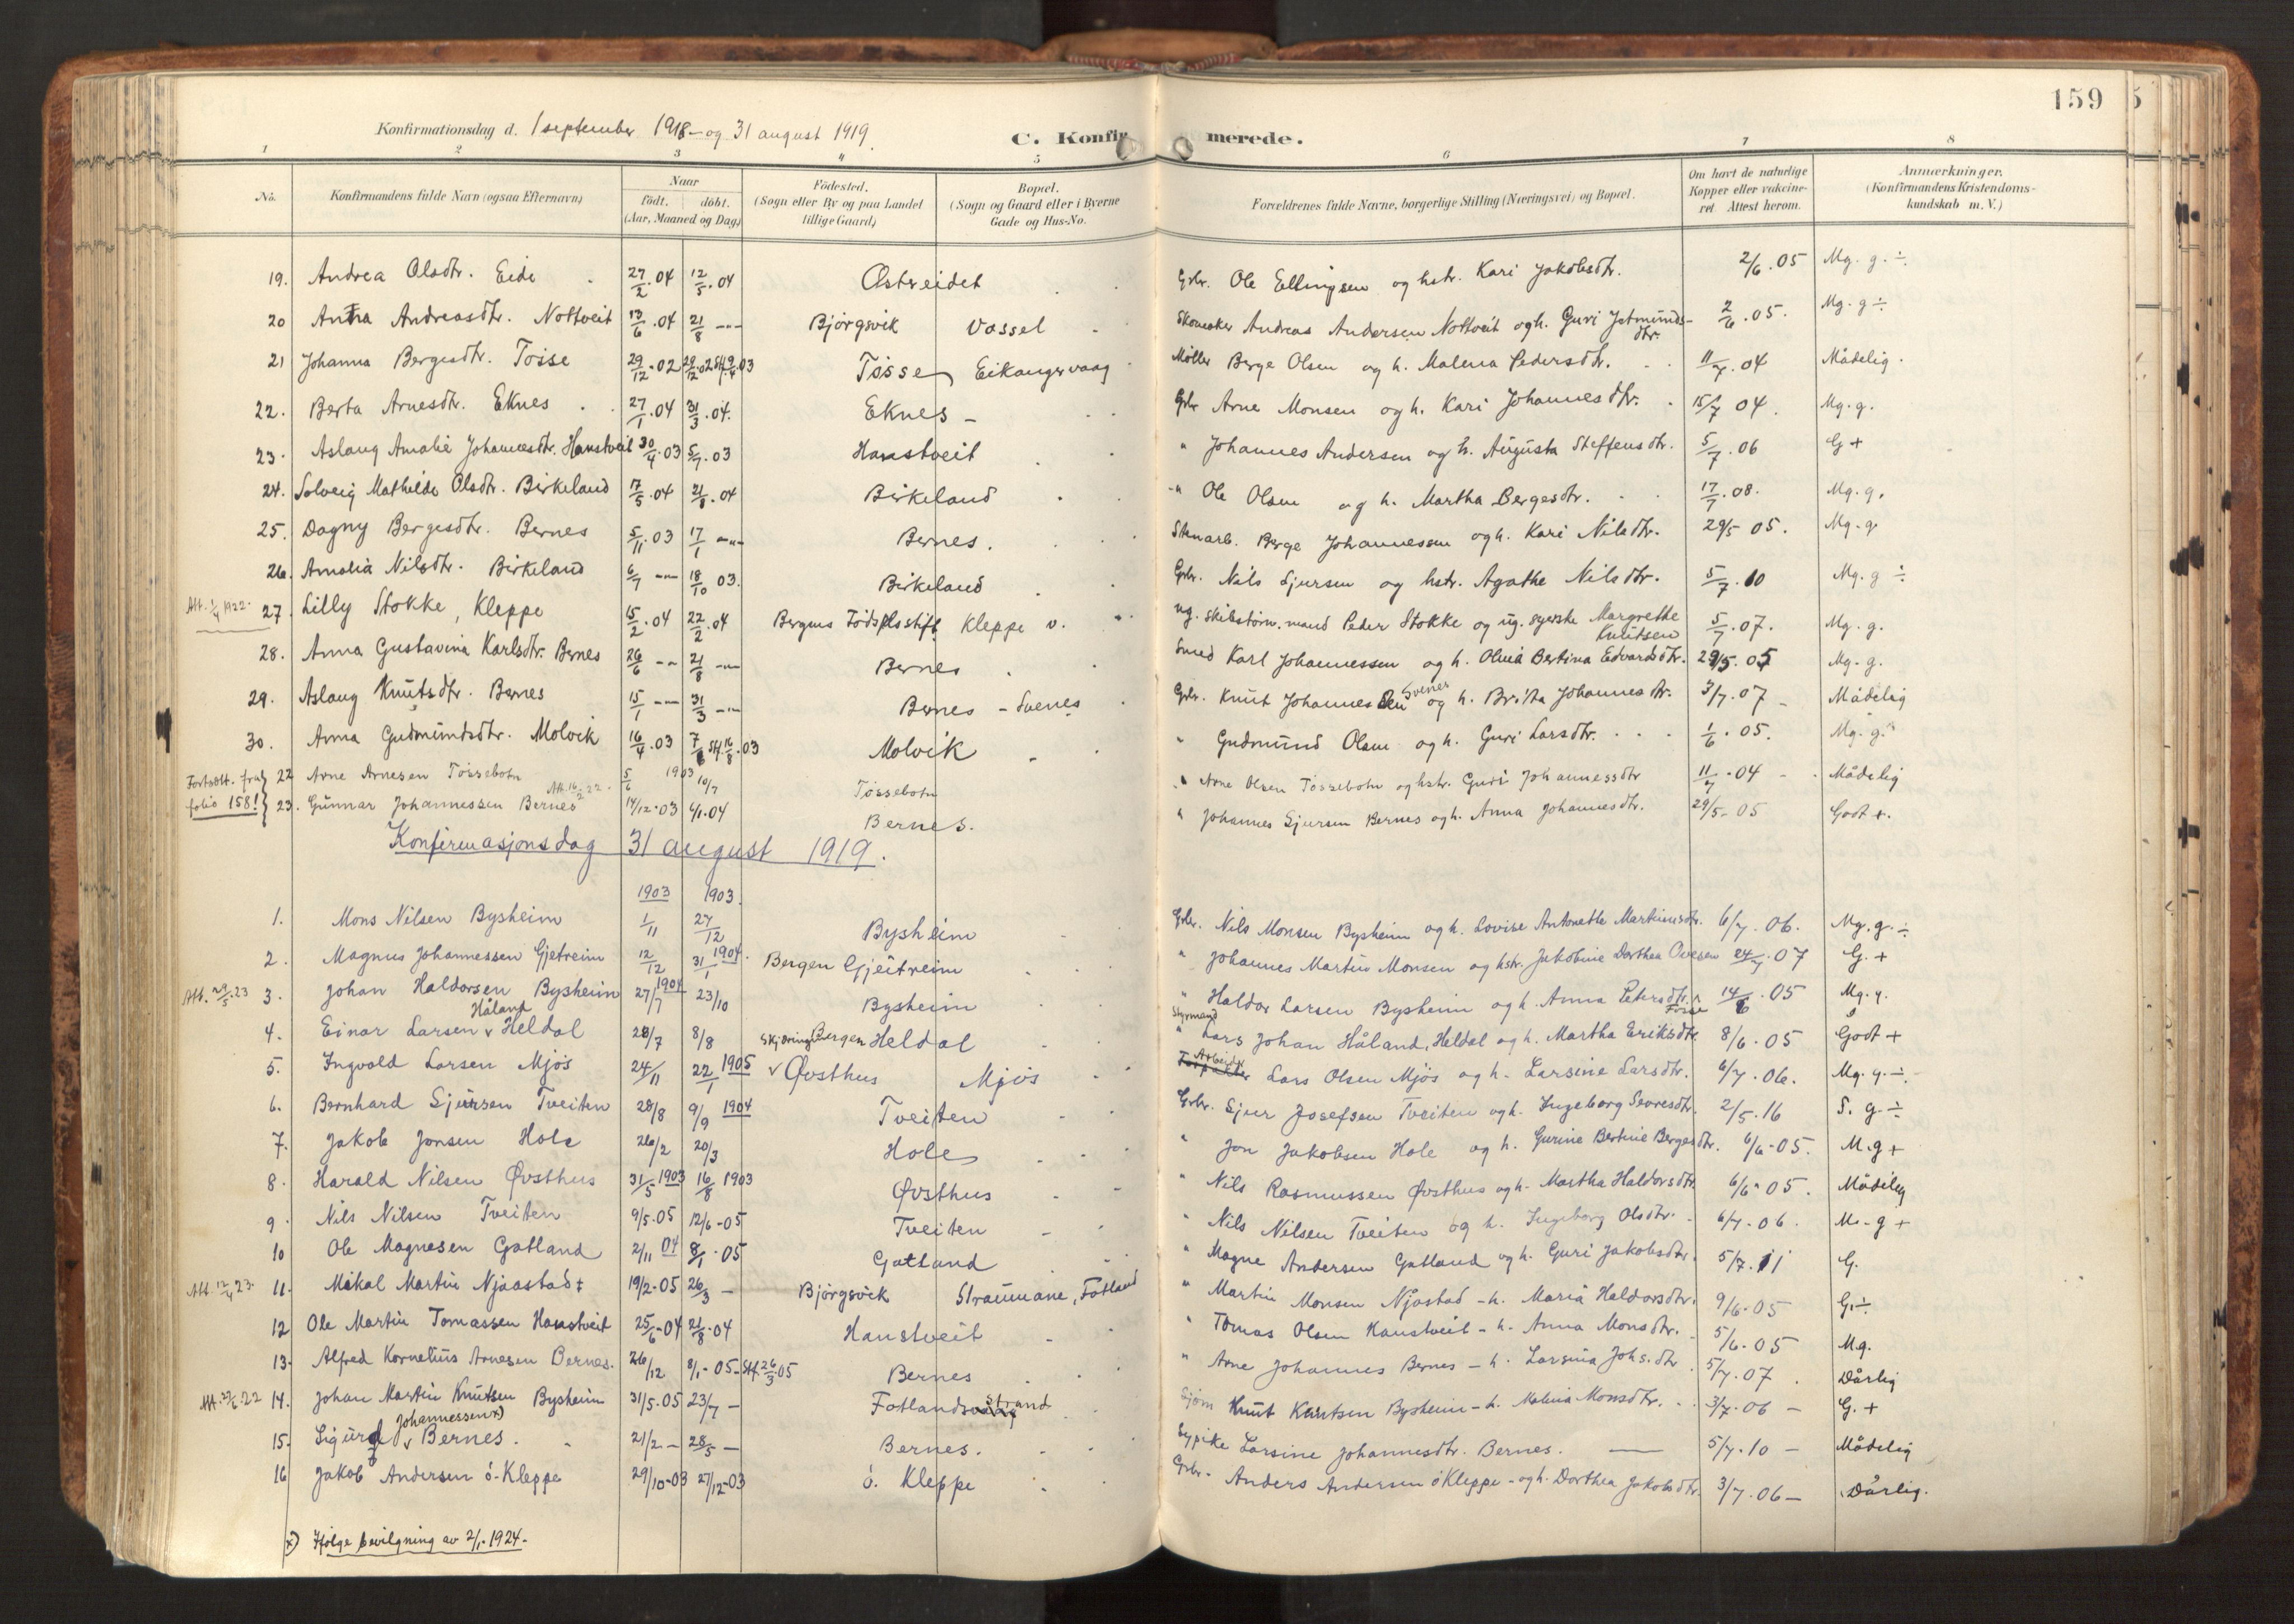 159
Konfirmationsdag d. 1 september 1918 - og 31 august 1919.
C. Konfirmerede.
1 2 3 4 5 6 7 8
No. Konfirmandens fulde Navn (ogsaa Efternavn) Naar født. døbt. (Aar, Maaned og Dag) Fødested. (Sogn eller By og paa Landet tillige Gaard) Bopæl. (Sogn og Gaard eller i Byerne Gade og Hus-No. Forældrenes fulde Navne, borgerlige Stilling (Næringsvei) og Bopæl. Om havt de naturlige Kopper eller vaksineret. Attest herom. Anmærkninger. (Konfirmandens Kristendomskundskab m. V.)
19. Andrea Olsdtr. Eide 27/2.04 12/5.04 Østreidet Grbr. Ole Ellingsen og hstr. Kari Jakobsdtr. 2/6.05 Mg. g. ÷
20 Anna Andreasdtr. Nottveit 13/6.04 21/8 -- Bjørgsvik Vassel Skomaker Andreas Andersen Nottveit og h. Guri Jetmundsdtr. 2/6.05. Mg. g ÷
21 Johanna Bergesdtr. Tosse 29/12.02 Tosse Eikangervaag Møller Berge Olsen og h. Malena Pedersdtr. 11/7.04 Mådelig.
22. Berta Arnesdtr. Eknes 27/1.04 31/3.04. Eknes - Grbr Arne Monsen og h. Kari Johannesdtr. 15/7 04. Mg. g.
23. Aslaug Amalie Johannesdtr. Hanstveit 30/4.03 5/7.03 Hanstveit " Johannes Andersen og h. Augusta Steffensdtr. 5/7.06 G +
24. Solveig Mathilde Olsdtr. Birkeland 17/5.04 21/8.04 Birkeland " Ole Olsen og h. Martha Bergesdtr. 17/7.08. Mg. g.
25. Dagny Bergesdtr. Bernes 5/11.03 17/1 -- Bernes. Stenarb. Berge Johannessen og h. Kari Nilsdtr. 29/5 05. Mg. g
26. Amalia Nilsdtr. Birkeland 6/7 -- 18/10 03. Birkeland Grbr. Nils Sjursen og hstr. Agathe Nilsdtr. 5/7.10 Mg. g ÷
Att. 1/4 1922. 27. Lilly Stokke, Kleppe 15/2.04 22/2.04 Bergens Fødselsstift. Kleppe v. ug. skibstørn. mand Peder Stokke og ug. syerske Margrethe Knutsen 5/7.07. Mg. g.
28. Anna Gustavina Karlsdtr. Bernes 26/6 -- 21/8 -- Bernes Smed Karl Johannessen og h. Olina Bertina Edvardsdtr. 29/5.05 Mg. g.
29. Aslaug Knutsdtr. Bernes 15/1 -- 31/3 -- Bernes - Svenes Grbr. Knut Johannessen Svenes og h. Brita Johannesdtr. 3/7.07 Mådelig
30. Anna Gudmundsdtr. Molvik 16/4.03 Molvik " Gudmund Olsen og h. Guri Larsdtr. 1/6.05. Mg. g.
Fortsatt. fra folio 158!
22 Arne Arnesen Tossebotn 5/6 1903 10/7 Tossebotn " Arne Olsen Tossebotn og hstr. Guri Johannessdtr 11/7-04 Mådelig
23. Gunnar Johannessen Bernes Att. 16/2 22. 14/12-03 4/1.04 Bernes. " Johannes Sjursen Bernes og h. Anna Johannesdtr. 29/5-05 Godt +.
Konfirmasjonsdag 31 august 1919.
1903 1903.
1. Mons Nilsen Bysheim 1/11 27/12 Bysheim Grbr. Nils Monsen Bysheim og h. Lovise Antonette Martinusdtr. 6/7.06. Mg. g. ÷
2. Magnus Johannessen Gjetreim 12/12 31/1 1904. Bergen Gjeitreim " Johannes Martin Monsen og hstr. Jakobine Dorthea Ovesen 24/7.07 G. +
Att. 29/5.23 3. Johan Haldorsen Bysheim 27/7 1904 23/10 Bysheim " Haldor Larsen Bysheim og h. Anna Petersdtr. 14/6.05 Mg. g.
4. Einar Larsen v Håland Heldal 28/7 8/8 Bergen Heldal Styrmand Lars Johan Håland, Heldal og h. Martha Eriksdtr. 8/6.05 Godt +
5. Ingvald Larsen Mjøs 24/11 22/1 1905 v Øvsthus Mjøs Arbeider Lars Olsen Mjøs og h. Larsine Larsdtr. 6/7.06. Mg. g. ÷
6. Bernhard Sjursen Tveiten 28/8 9/9 1904 Tveiten Grbr. Sjur Josefsen Tveiten og h. Ingeborg Sjoresdtr. 2/5.16 S. g. ÷
7. Jakob Jonsen Hole 26/2 20/3 Hole " Jon Jakobsen Hole og h. Gurine Bertine Bergesdtr. 6/6-05. M.g +
8. Harald Nilsen Øvsthus 31/5 1903 16/8 1903 Øvsthus " Nils Rasmussen Øvsthus og h. Martha Haldorsdtr 6/6-05. Mådelig
9. Nils Nilsen Tveiten 9/5.05 12/6-05 Tveiten " Nils Nilsen Tveiten og h. Ingeborg Olsdtr. 6/7.06. M. g +
10 Ole Magnesen Gatland 2/11 04 8/1.05 Gatland " Magne Andersen Gatland og h. Guri Jakobsdtr. 5/7.11 G.
Att. 12/4 23. 11. Mikal Martin Njaastad + 19/2-05 26/3 - Bjørgsvik Straumane, Fotland " Martin Monsen Njåstad - h. Maria Haldorsdtr. 9/6.05 G. ÷
12 Ole Martin Tomassen Hanstveit 25/6-04 21/8.04 Hanstveit " Tomas Olsen Hanstveit - h. Anna Monsdtr. 5/6.05 Mg.
13. Alfred Kornelius Arnesen Bernes. 26/12 8/1-05-Stf. 26/3.05 Bernes " Arne Johannes Bernes - h. Larsina Johs.dtr 5/7.07. Dårlig
14. Johan Martin Knutsen Bysheim 31/5.05 23/7 - Fotlandsstrand Knut Knutsen Bysheim - h. Malina Monsdtr. 3/7.06 - G. +
15. Sigurd v Johannessen x) Bernes. 21/2 - 28/5 - Bernes. Sypike Larsine Johannesdtr. Bernes. 5/7.10 - Mådelig
16 Jakob Andersen ó-Kleppe 29/10-03 27/12-03 ó. Kleppe Grbr. Anders Andersen óKleppe - og h. Dorthea Jakobsdtr. 3/7.06 - Dårlig.
x) Ifølge bevilgning av 2/1-1924.